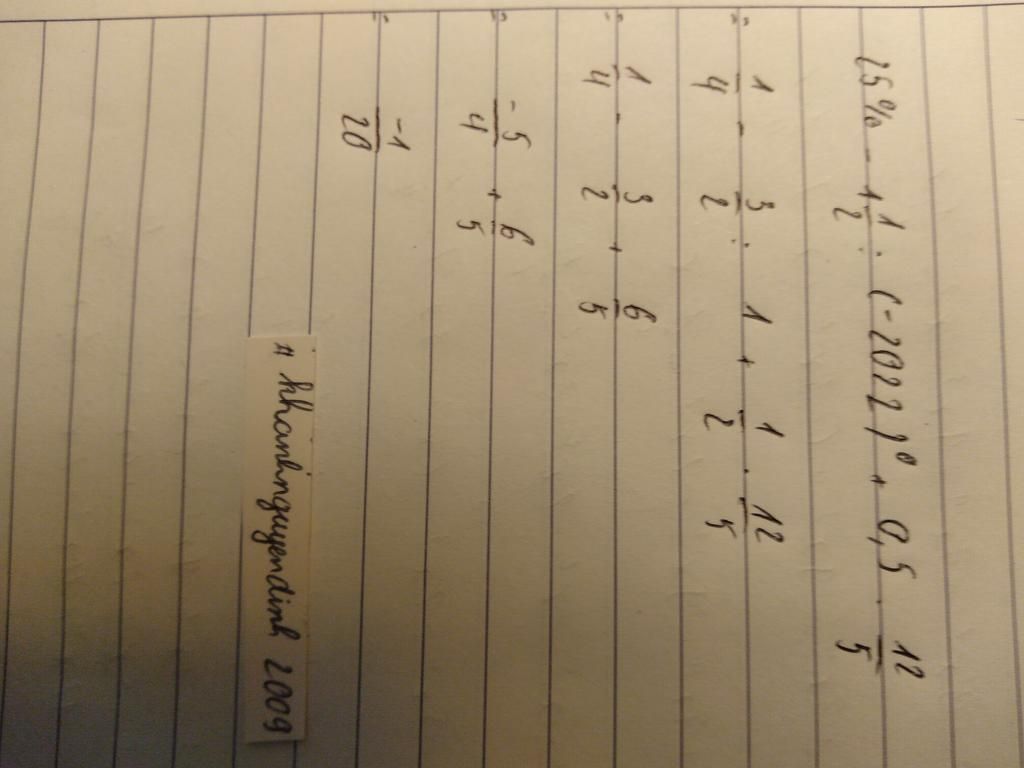 25% - 1 1/2 : (-2022)⁰ + 0,5 . 12/5
= 1/4 - 3/2 : 1 + 1/2 . 12/5
= 1/4 - 3/2 + 6/5
= -5/4 + 6/5
= -1/20
# khanhnguyendinh 2009